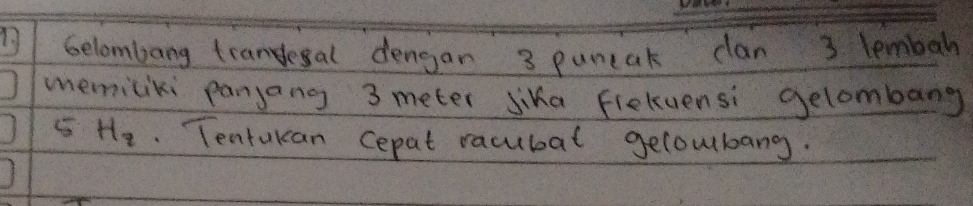 Gelombang trandesal dengan 3 puncak dan 3 lembah
memiliki panjang 3 meter jika frekuensi gelombang
5 Hz. Tentukan cepat rambat gelombang.